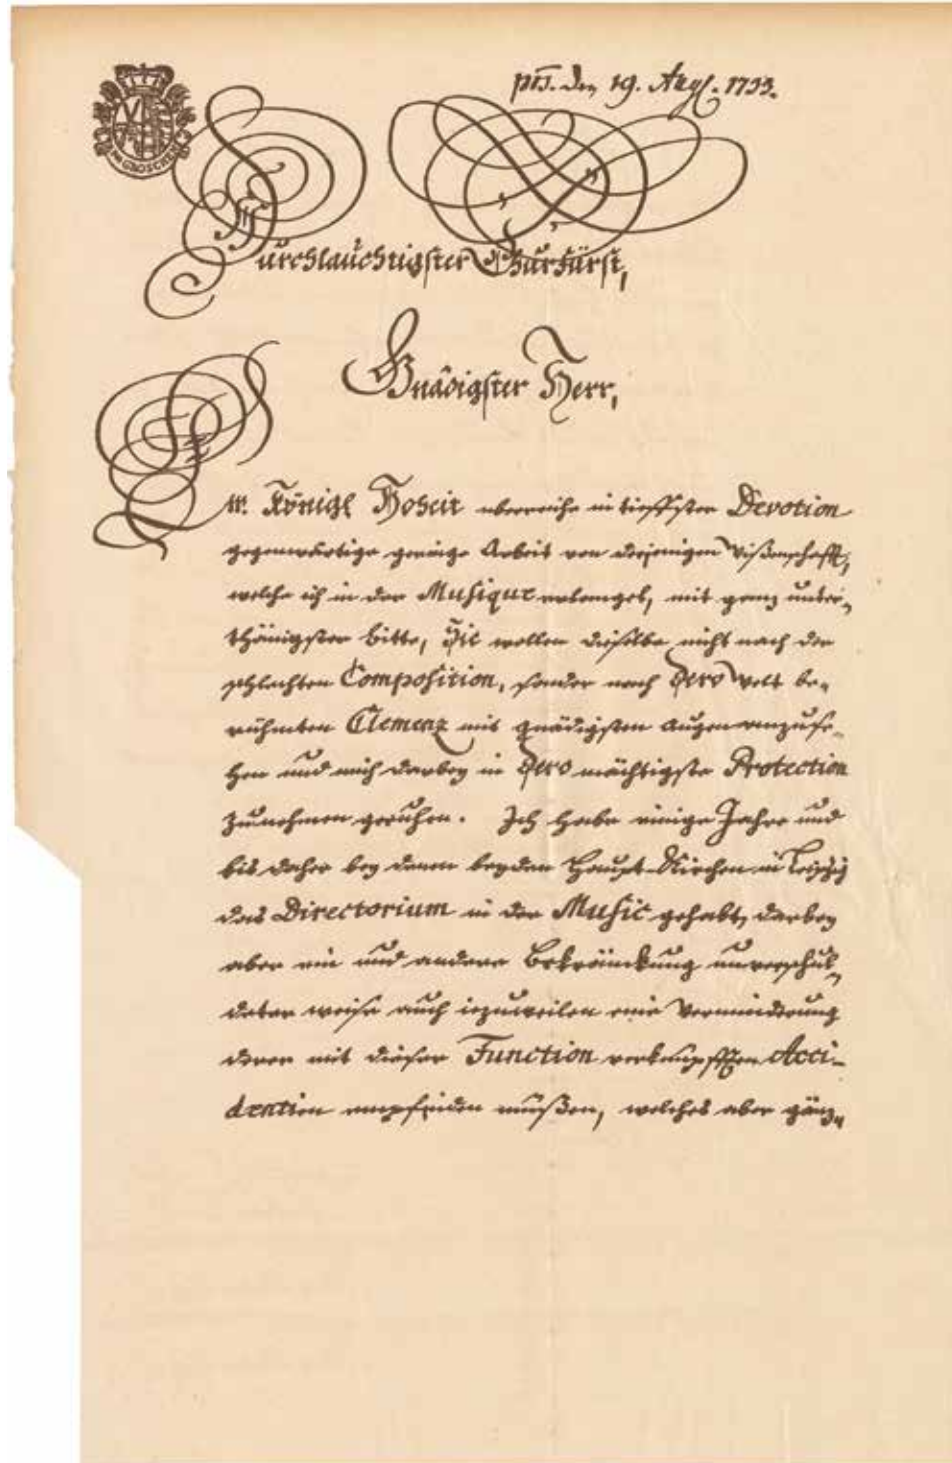 prs. den 19. Aug. 1733.
EIN GROSCHEN
Durchlauchtigster Churfürst,
Gnädigster Herr,
Ew. Königl Hoheit überreiche in tieffster Devotion
gegenwärtige geringe Arbeit von derjenigen Wißenschafft,
welche ich in der Musique erlanget, mit ganz unter-
thänigster Bitte, Sie wollen dieselbe nicht nach der
schlechten Composition, sonder nach Dero Welt be-
rühmten Clemenz mit gnädigsten Augen anzuse-
hen und mich darbey in Dero mächtigste Protection
zunehmen geruhen. Ich habe einige Jahre und
bis daher bey denen beyden Haupt-Kirchen in Leipzig
das Directorium in der Music gehabt, darbey
aber ein und andere Bekränckung unverschul-
deter weise auch iezuweilen eine Verminderung
derer mit dieser Function verknüpfften Acci-
dentien empfinden müßen, welches aber gänz-